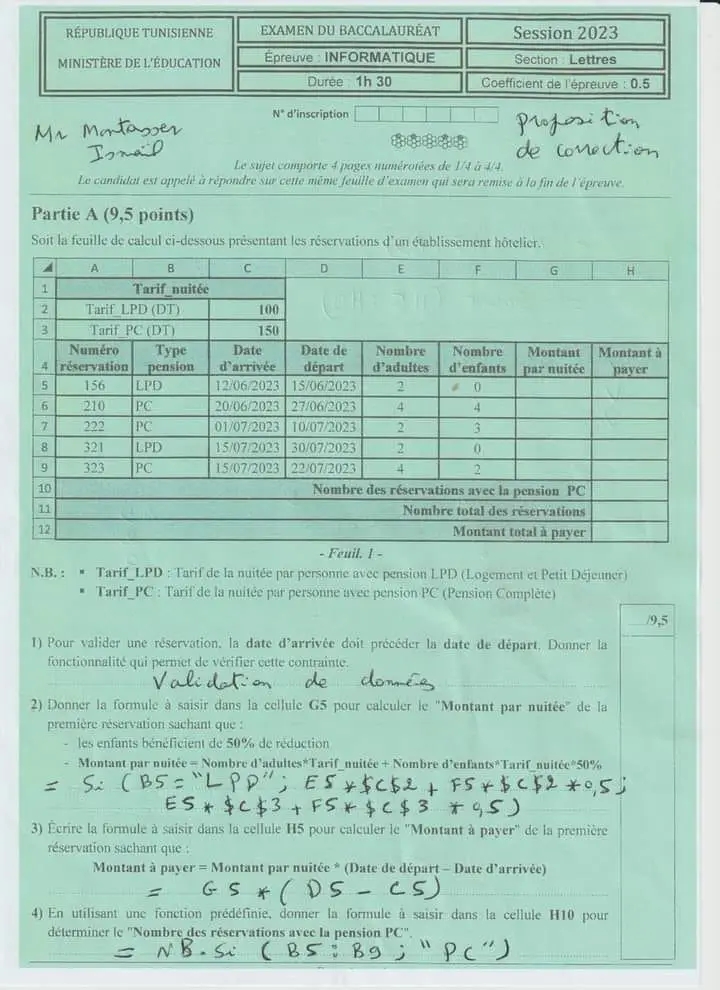 RÉPUBLIQUE TUNISIENNE
MINISTÈRE DE L'ÉDUCATION
EXAMEN DU BACCALAURÉAT
Session 2023
Épreuve : INFORMATIQUE
Section : Lettres
Durée : 1h 30
Coefficient de l'épreuve : 0.5
N° d'inscription
Mr Montasser
Ismail
proposition
de correction
Le sujet comporte 4 pages numérotées de 1/4 à 4/4.
Le candidat est appelé à répondre sur cette même feuille d'examen qui sera remise à la fin de l'épreuve.
Partie A (9,5 points)
Soit la feuille de calcul ci-dessous présentant les réservations d'un établissement hôtelier.
A B C D E F G H
1 Tarif_nuitée
2 Tarif_LPD (DT) 100
3 Tarif_PC (DT) 150
4 Numéro réservation Type pension Date d'arrivée Date de départ Nombre d'adultes Nombre d'enfants Montant par nuitée Montant à payer
5 156 LPD 12/06/2023 15/06/2023 2 0
6 210 PC 20/06/2023 27/06/2023 4 4
7 222 PC 01/07/2023 10/07/2023 2 3
8 321 LPD 15/07/2023 30/07/2023 2 0
9 323 PC 15/07/2023 22/07/2023 4 2
10 Nombre des réservations avec la pension PC
11 Nombre total des réservations
12 Montant total à payer
- Feuil. 1 -
N.B. : ▪ Tarif_LPD : Tarif de la nuitée par personne avec pension LPD (Logement et Petit Déjeuner)
▪ Tarif_PC : Tarif de la nuitée par personne avec pension PC (Pension Complète)
/9,5
1) Pour valider une réservation, la date d'arrivée doit précéder la date de départ. Donner la
fonctionnalité qui permet de vérifier cette contrainte.
Validation de données
2) Donner la formule à saisir dans la cellule G5 pour calculer le "Montant par nuitée" de la
première réservation sachant que :
- les enfants bénéficient de 50% de réduction
- Montant par nuitée = Nombre d'adultes*Tarif_nuitée + Nombre d'enfants*Tarif_nuitée*50%
= Si (B5="LPD"; E5*$C$2 + F5*$C$2*0,5;
E5*$C$3 + F5*$C$3 *0,5)
3) Écrire la formule à saisir dans la cellule H5 pour calculer le "Montant à payer" de la première
réservation sachant que :
Montant à payer = Montant par nuitée * (Date de départ – Date d'arrivée)
= G5*(D5 - C5)
4) En utilisant une fonction prédéfinie, donner la formule à saisir dans la cellule H10 pour
déterminer le "Nombre des réservations avec la pension PC".
= NB.Si (B5:B9;"PC")